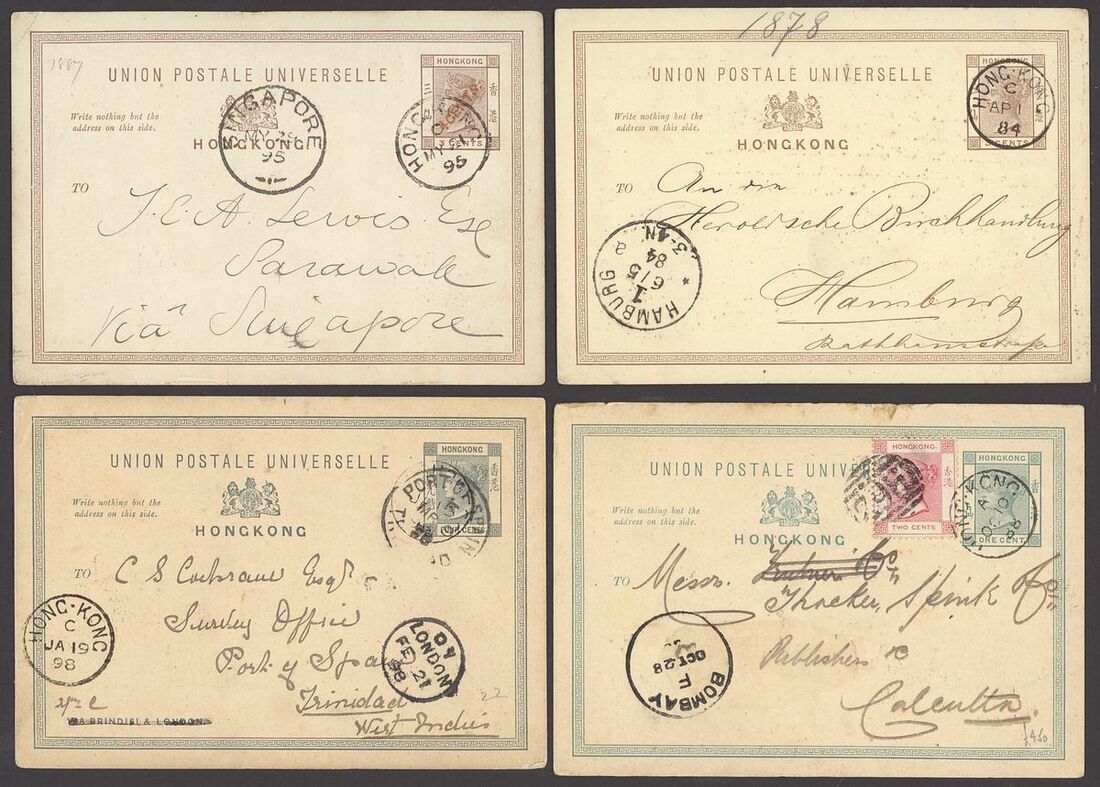 1887
UNION POSTALE UNIVERSELLE
HONGKONG
香港
CENTS
Write nothing but the
address on this side.
HONGKONG
SINGAPORE
MY 28
95
HONG KONG
C
MY 21
95
TO
J.C.A. Lewis Esq
Sarawak
Via Singapore
1878
UNION POSTALE UNIVERSELLE
HONGKONG
CENTS
Write nothing but the
address on this side.
HONGKONG
HONG-KONG
C
AP 1
84
TO
An die
Herold'sche Buchhandlung
Hamburg
HAMBURG
1
6/5
84
3-4N
UNION POSTALE UNIVERSELLE
HONGKONG
香港
CENTS
Write nothing but the
address on this side.
HONGKONG
PORT OF SPAIN
98
TO
C S Cochrane Esqr
Survey Office
Port of Spain
Trinidad
West Indies
HONG-KONG
C
JA 19
98
LONDON
FE 21
98
VIA BRINDISI & LONDON.
22
UNION POSTALE UNIVER
HONGKONG
香港
TWO CENTS
HONGKONG
香
ONE CENT
Write nothing but the
address on this side.
HONGKONG
HONG-KONG
A
OC 10
88
TO
Messrs.
Thacker, Spink & Co
Publishers &c
Calcutta
BOMBAY
F
OCT 28
450